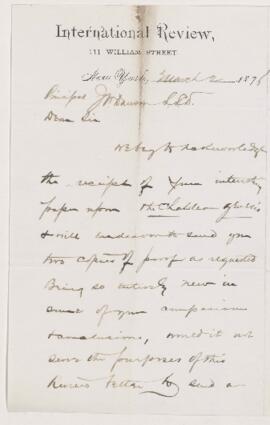 International Review,
111 WILLIAM STREET.
New York, March 2 1876
Principal J W Dawson LLD.
Dear Sir
We beg to acknowledge
the receipt of your interesting
paper upon the Chaldean Genesis
& will endeavor to send you
two copies of proof as requested
Being so entirely new in
some of your comparisons
& conclusions, would it not
serve the purposes of this
Review better to send a